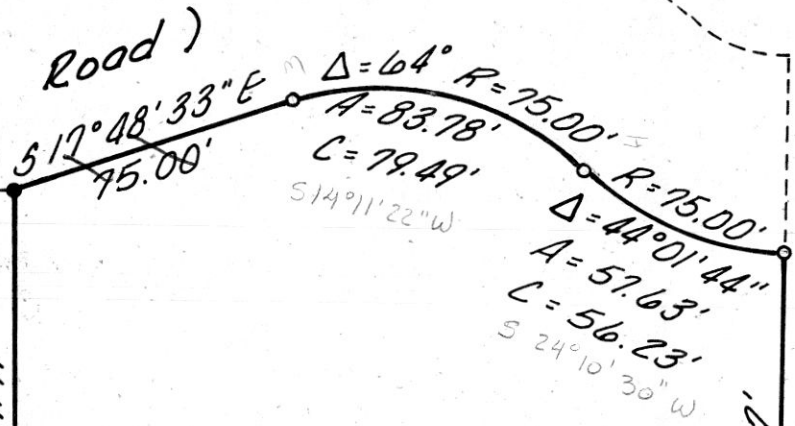 Road )
S 17° 48' 33" E
75.00'
Δ = 64° R = 75.00'
A = 83.78'
C = 79.49'
S 14° 11' 22" W
R = 75.00'
Δ = 44° 01' 44"
A = 57.63'
C = 56.23'
S 24° 10' 30" W